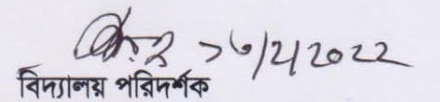 ১৬/2/2022
বিদ্যালয় পরিদর্শক